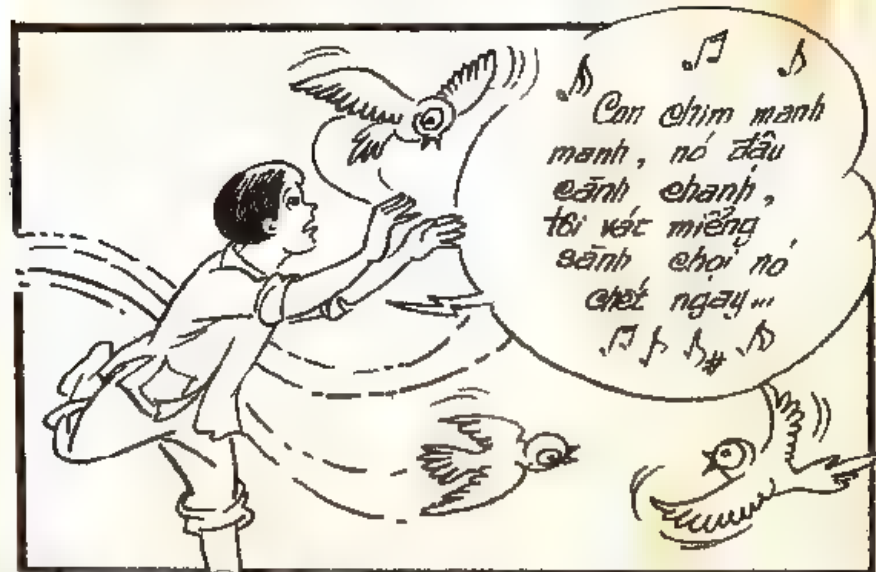 Con chim manh
manh, nó đậu
cành chanh,
tôi vác miểng
sành chọi nó
chết ngay...